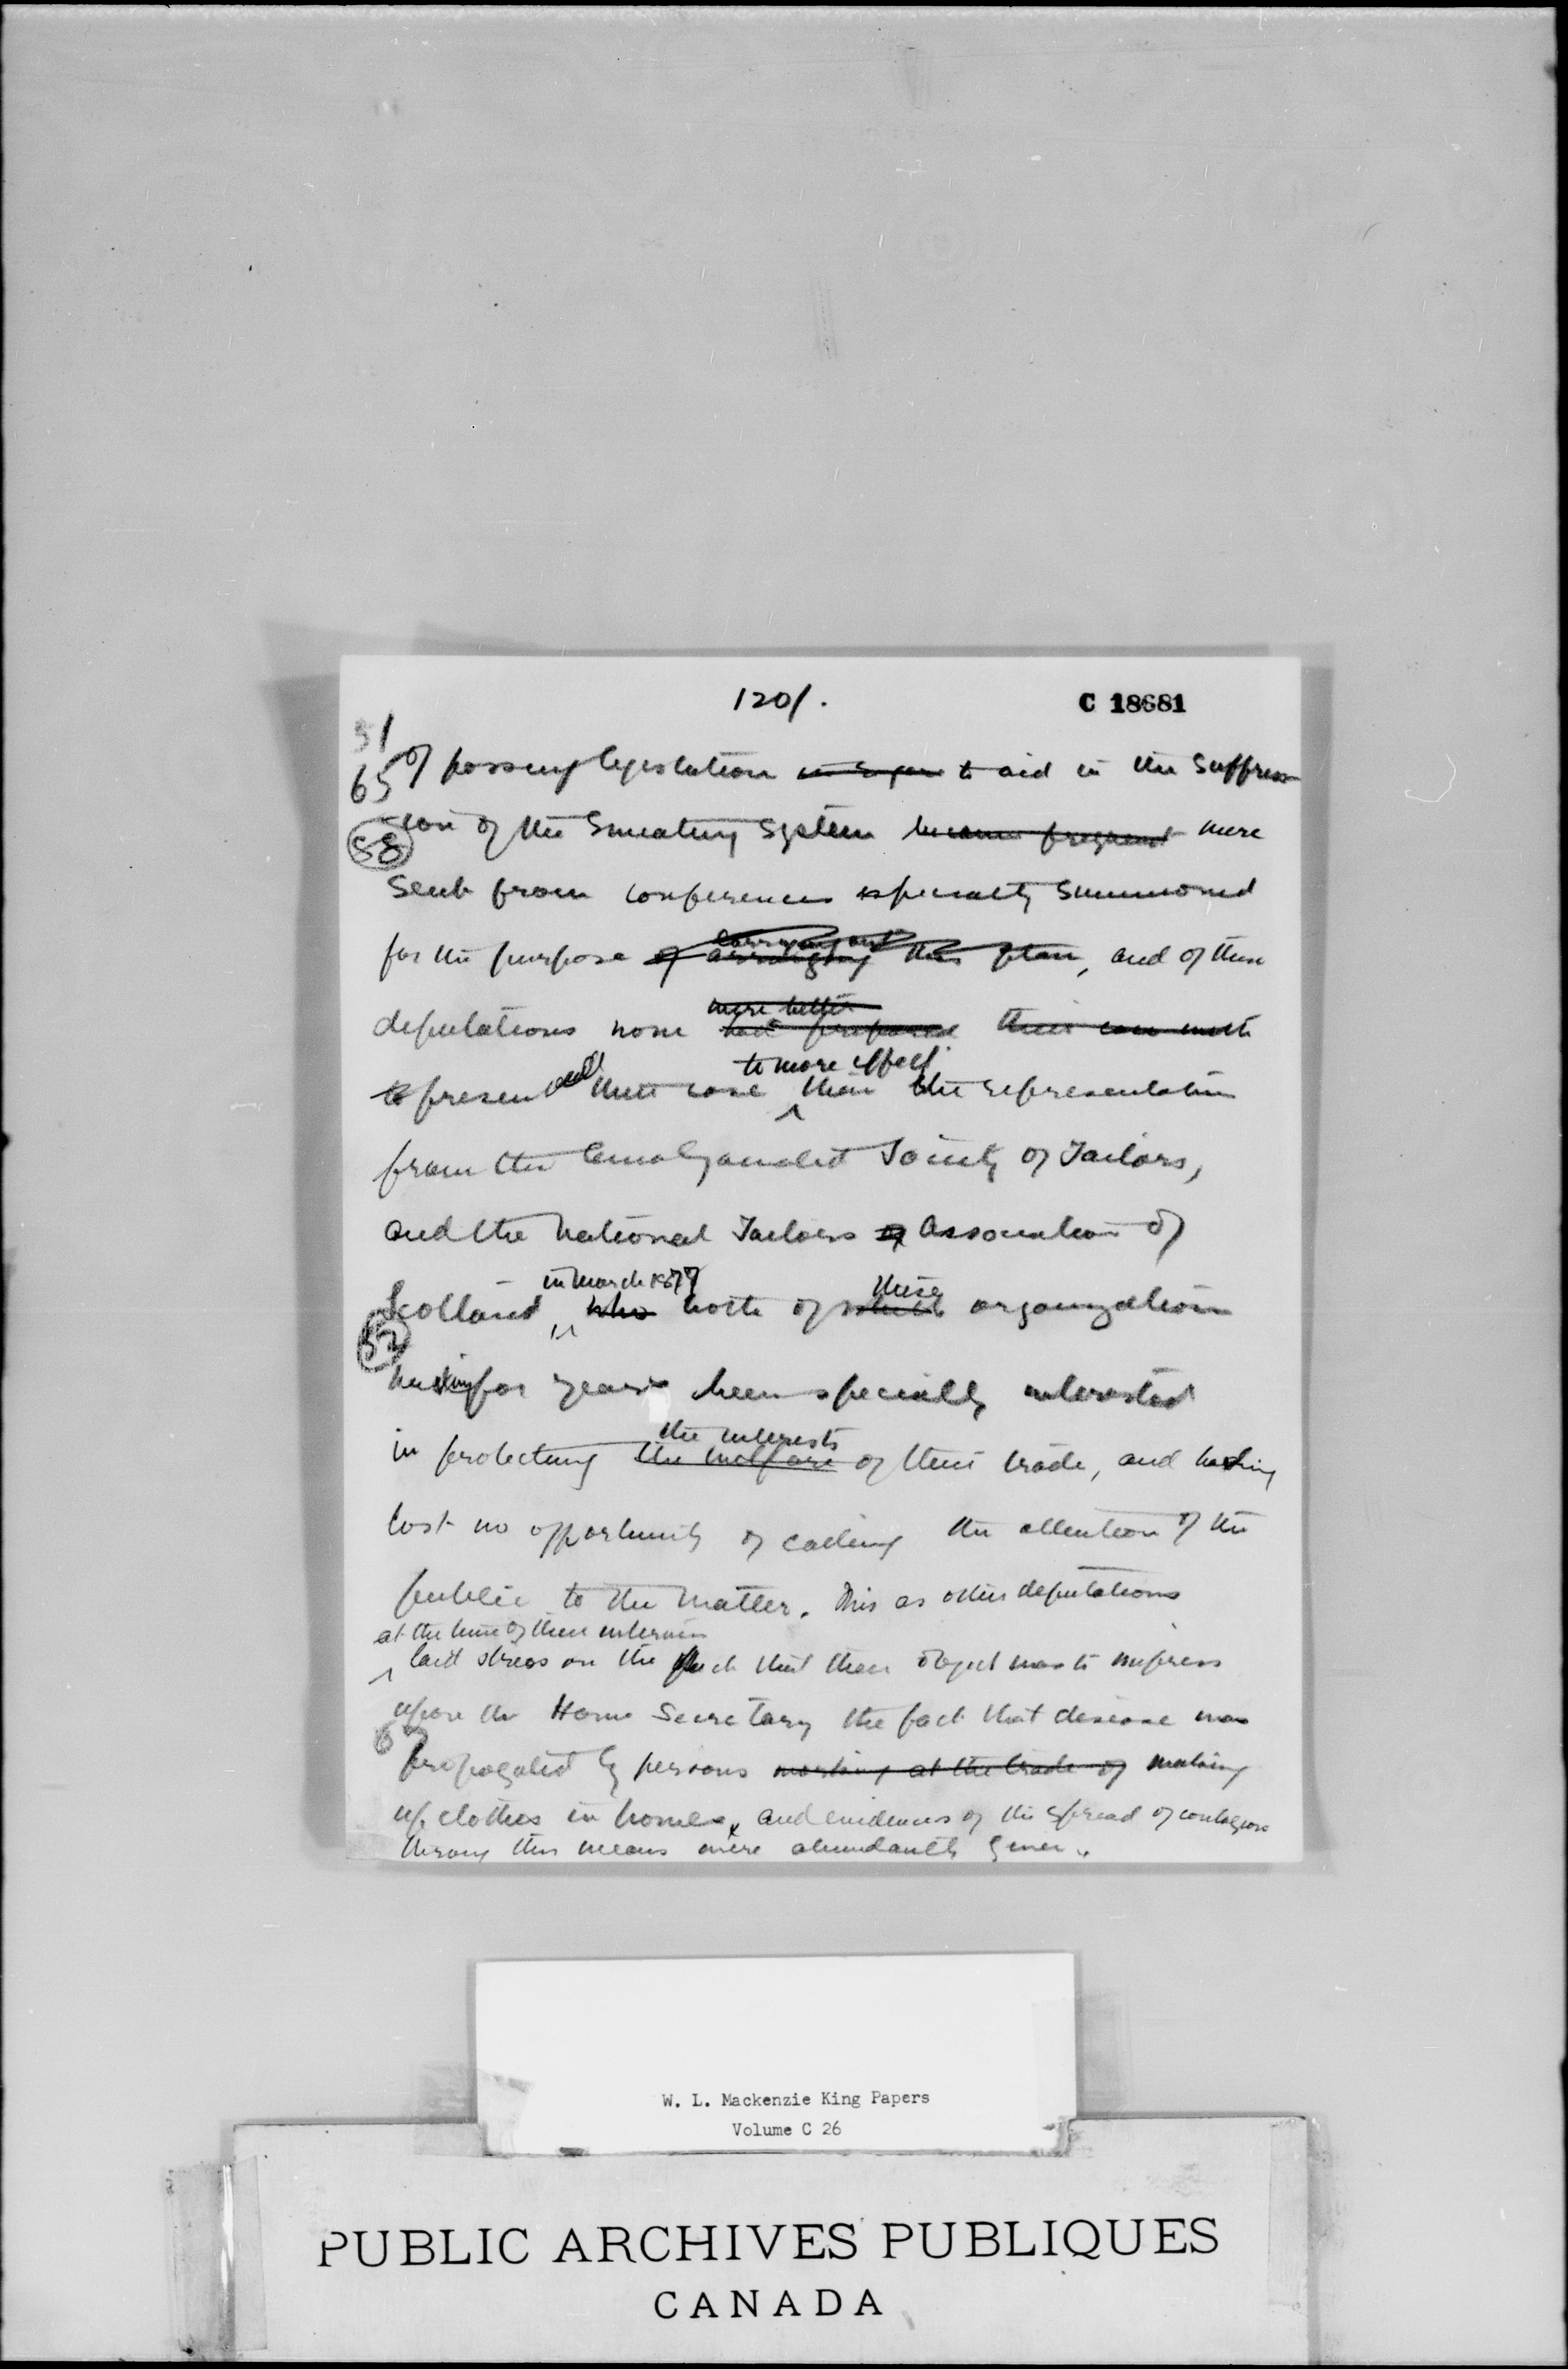 120/.
C 18681
51
65 of passing legislation to aid in the suppres
58 -sion of the Sweating System became frequent were
sent from conferences specially summoned
carrying out
for the purpose of arranging this plan, and of these
were better
deputations none had prepared their case with
to more effect
to presented their case ^ than the representation
from the Amalgamated Society of Tailors,
and the National Tailors Association of
in March 1879 these
Scotland, who both of which organization
52
having for years been specially interested
the interests
in protecting the welfare of their trade, and having
lost no opportunity of calling the attention of the
public to the matter. This as other deputations
at the time of their interview
^ laid stress on the that their object was to impress
upon the Home Secretary the fact that disease was
propagated by persons working at the trade of making
up clothes in homes, and evidences of the spread of contagion
through this means were abundantly given.
W. L. Mackenzie King Papers
Volume C 26
PUBLIC ARCHIVES PUBLIQUES
CANADA